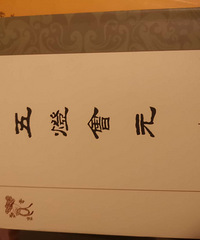 五燈會元